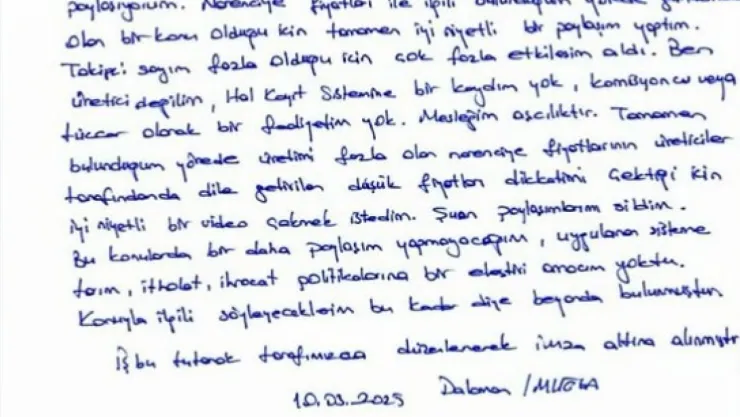 paylaşıyorum. Narenciye fiyatları ile ilgili bulunduğum yörede
olan bir konu olduğu için tamamen iyi niyetli bir paylaşım yaptım.
Takipçi sayım fazla olduğu için çok fazla etkileşim aldı. Ben
üretici değilim, Hal Kayıt Sistemine bir kaydım yok, komisyoncu veya
tüccar olarak bir faaliyetim yok. Mesleğim aşçılıktır. Tamamen
bulunduğum yörede üretimi fazla olan narenciye fiyatlarının üreticiler
tarafındanda dile getirilen düşük fiyatlar dikkatimi çektiği için
iyi niyetli bir video çekmek istedim. Şuan paylaşımlarımı sildim.
Bu konularda bir daha paylaşım yapmayacağım, uygulanan sisteme
tarım, ithalat, ihracat politikalarına bir eleştiri amacım yoktur.
Konuyla ilgili söyleyeceklerim bu kadar diye beyanda bulunmuştur.
İş bu tutanak tarafımızca düzenlenerek imza altına alınmıştır
10.03.2025 Dalaman / MUĞLA